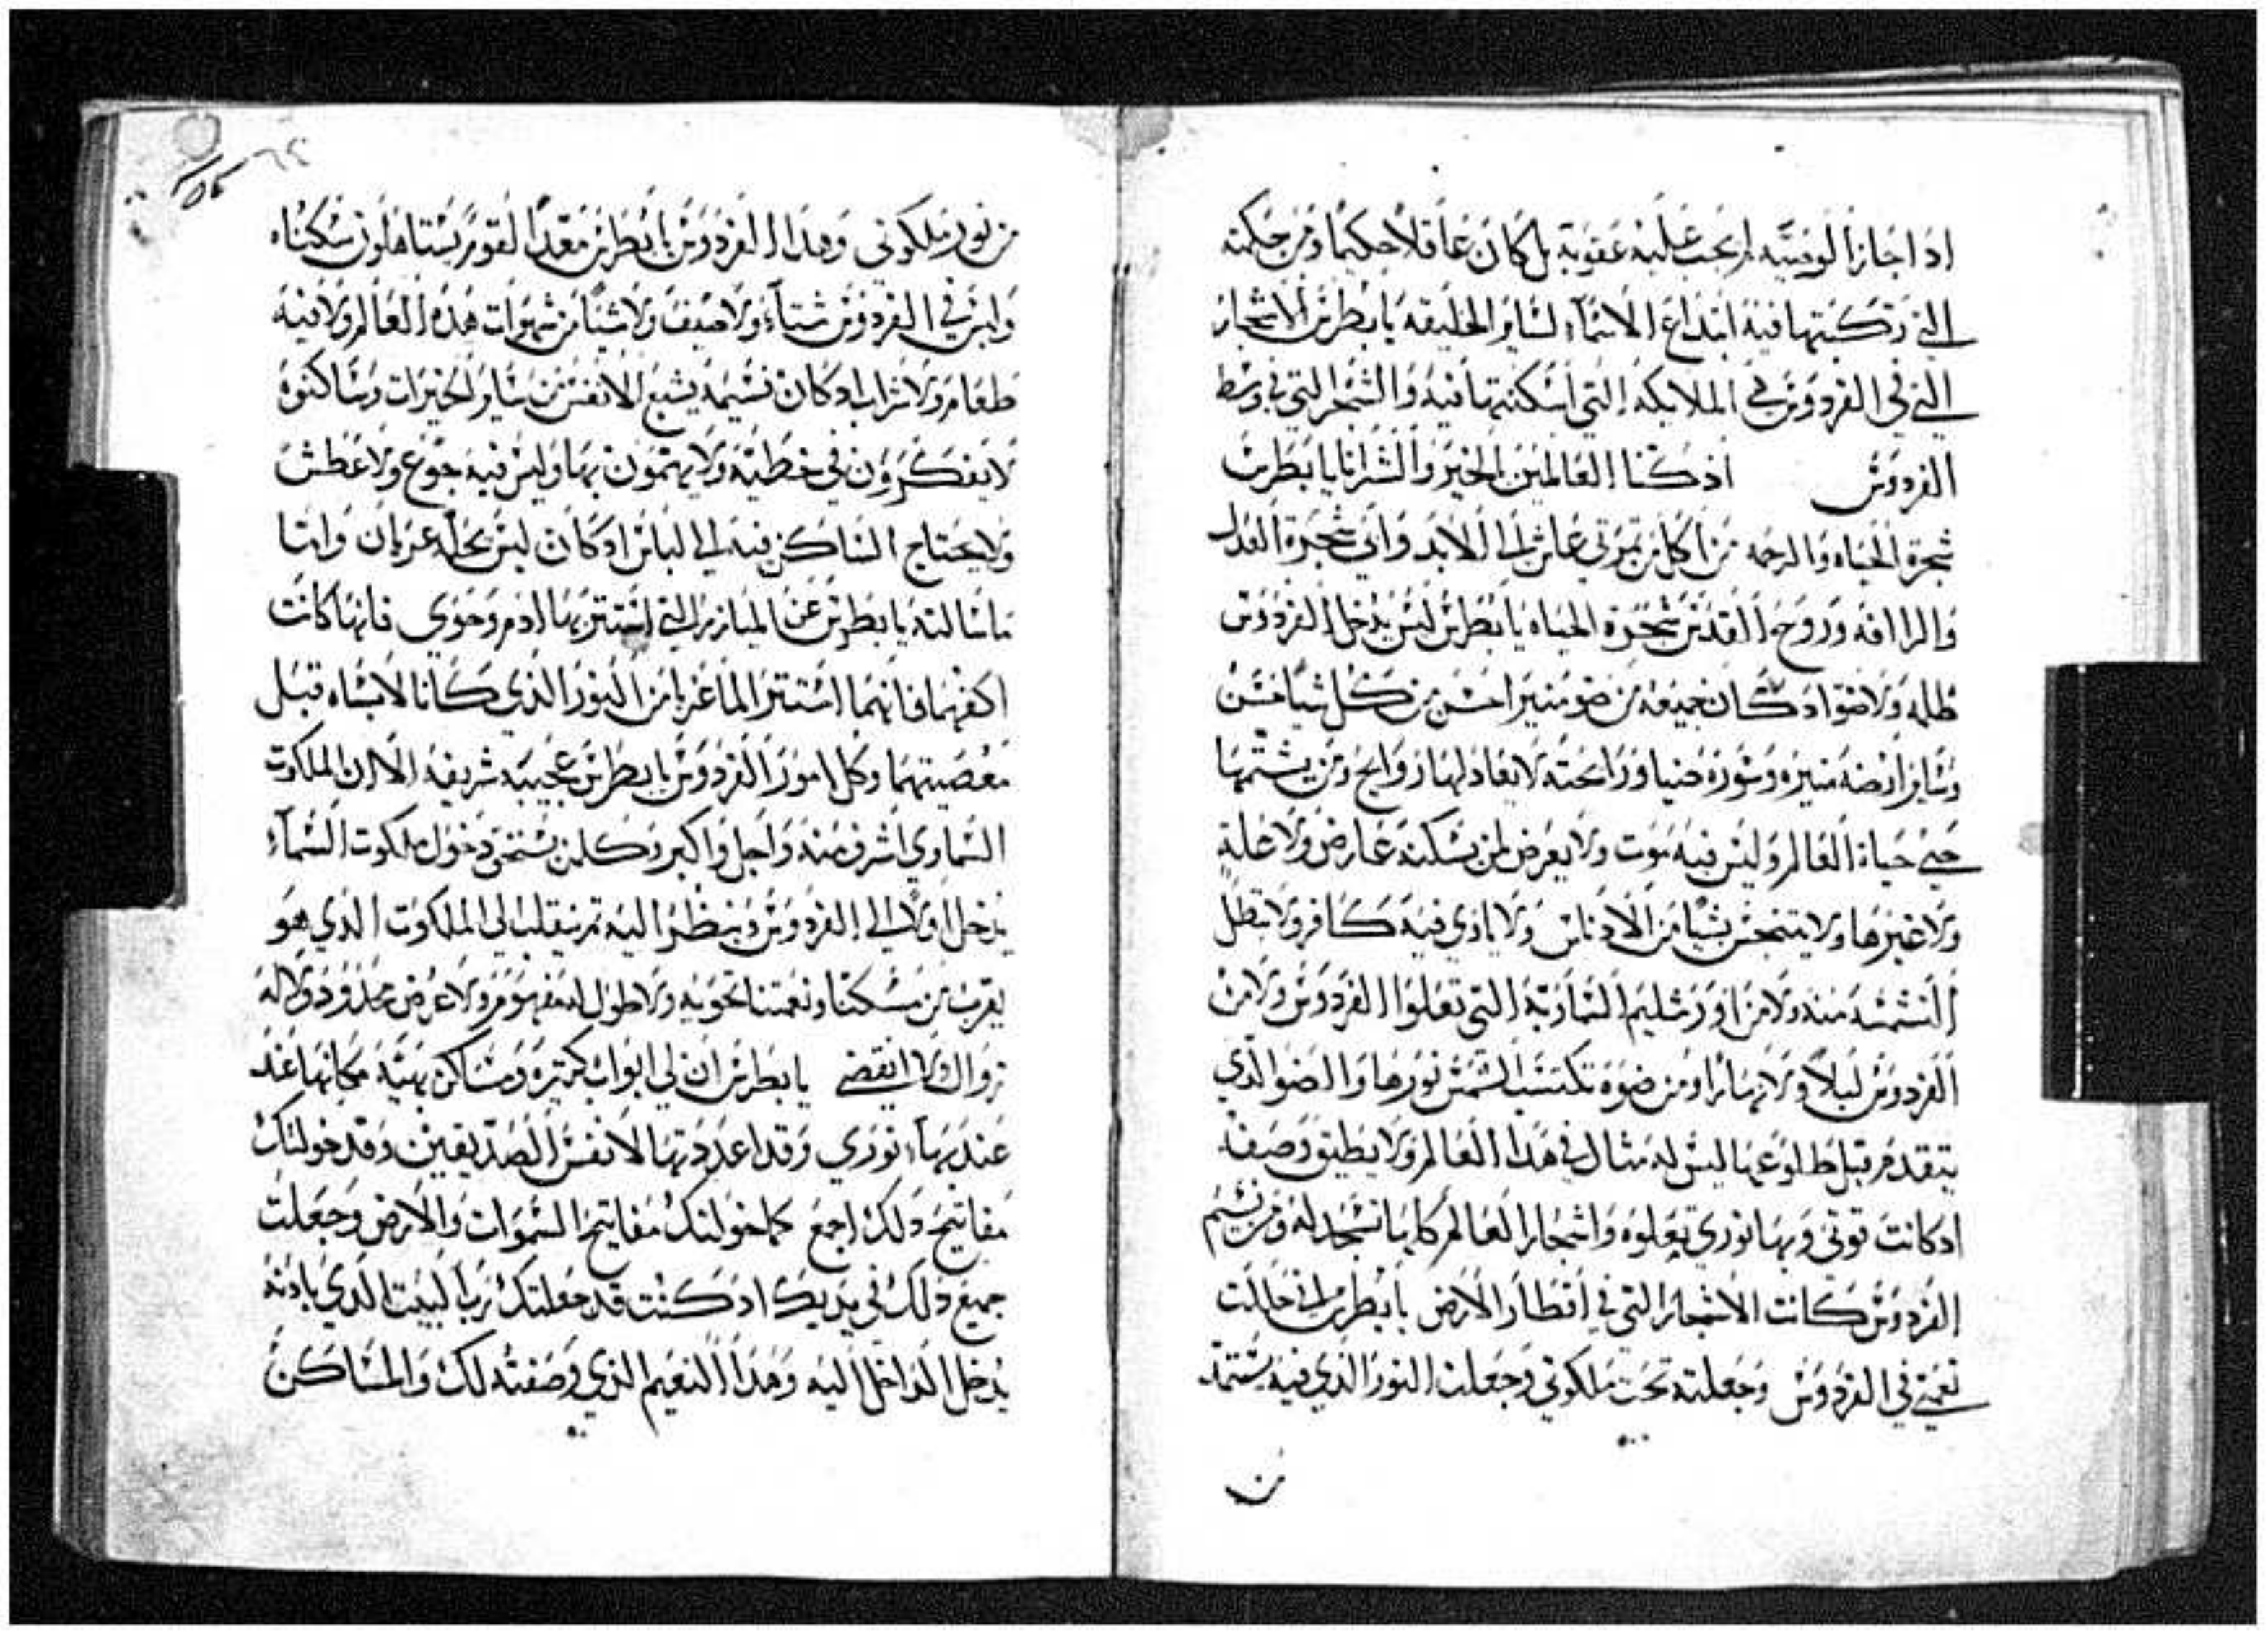 اذا جاز الوصيه لم يجب عليه عقوبة بل كان عاقلاً حكيمًا ومن حكمته
التي ركبتها فيه ابتداع الاسماء لساير الخليقه يا بطرس الاشجار
التي في الفردوس هي الملايكه التي اسكنتها فيه والشجر التي في وسط
الفردوس انا يا بطرس
شجرة الحياه والرحمه من اكل من ثمرتي عاش الى الابد واني شجرة العدل
والراافه وروح القدس شجرة الحياه يا بطرس ليس يدخل الفردوس
ظلمه ولا ضو اد كان جميعه من ضو منير احسن من كل شيا حسن
وساير ارضه منيره وسوره ضيا ورايحته لا يعادلها روايح ومن يشتمها
حيي حياة العالم وليس فيه موت ولا يعرض لمن يسكنه عارض ولا علة
ولا غيرها ولا يتنجس بشيا من الادناس ولا ياوي فيه كافر ولا تبطل
الشمسه منه ولا من اورشليم السماويه التي تعلوا الفردوس ولا من
الفردوس ليلاً ولا نهارًا ومن ضوه تكتسب الشمس نورها والضو الذي
يتقدم قبل طلوعها ليس له مثال في هذا العالم ولا يطيق وصفه
اد كانت قوتي وبها نوري تعلوه واشجار العالم كلها تسجد له ومن نسيم
الفردوس كانت الاشجار التي في اقطار الارض يا بطرس اني حاللت
نعمتي في الفردوس وجعلته تحت ملكوتي وجعلت النور الذي فيه يستمد
من
من نور ملكوتي وهذا الفردوس يا بطرس معدًا لقوم يستاهلون سكناه
وليس في الفردوس شتاء ولا صيف ولا شيًا من شهوات هذه العالم ولا فيه
طعام ولا شراب اد كان نسيمه يشبع الانفس من ساير الخيرات وساكنوه
لا يفكرون في خطية ولا يهتمون بها وليس فيه جوع ولا عطش
ولا يحتاج الساكن فيه الى لباس اد كان ليس بحاله عريان واما
ما سالته يا بطرس عن الميازر التي استتر بها ادم وحوى فانها كانت
اكفهما فانهما استترا لما عريا من النور الذي كانا لابساه قبل
معصيتهما وكل امور الفردوس يا بطرس عجيبه شريفه الا ان الملكوت
السماوي اشرف منه واجل واكبر وكلمن يستحق دخول ملكوت السماء
يدخل اولاً الى الفردوس وينظر اليه ثم ينقلب الى الملكوت الذي هو
يقرب من مسكننا ونعمتنا تحويه ولا طول له مفهوم ولا عرض محدود ولا له
زوال ولا انقضى يا بطرس ان لي ابواب كتيره ومساكن بهيه مكانها عند
عند بهاء نوري وقد اعددتها لانفس الصديقين وقد خولتك
مفاتيح دلك اجمع كما خولتك مفاتيح السموات والارض وجعلت
جميع دلك في يديك اد كنت قد جعلتك رب البيت الذي بادنه
يدخل الداخل اليه وهذا النعيم الذي وصفته لك والمساكن